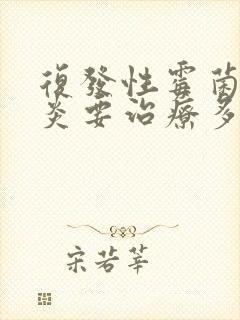 復發性霉菌
炎要治療多
宋若莘